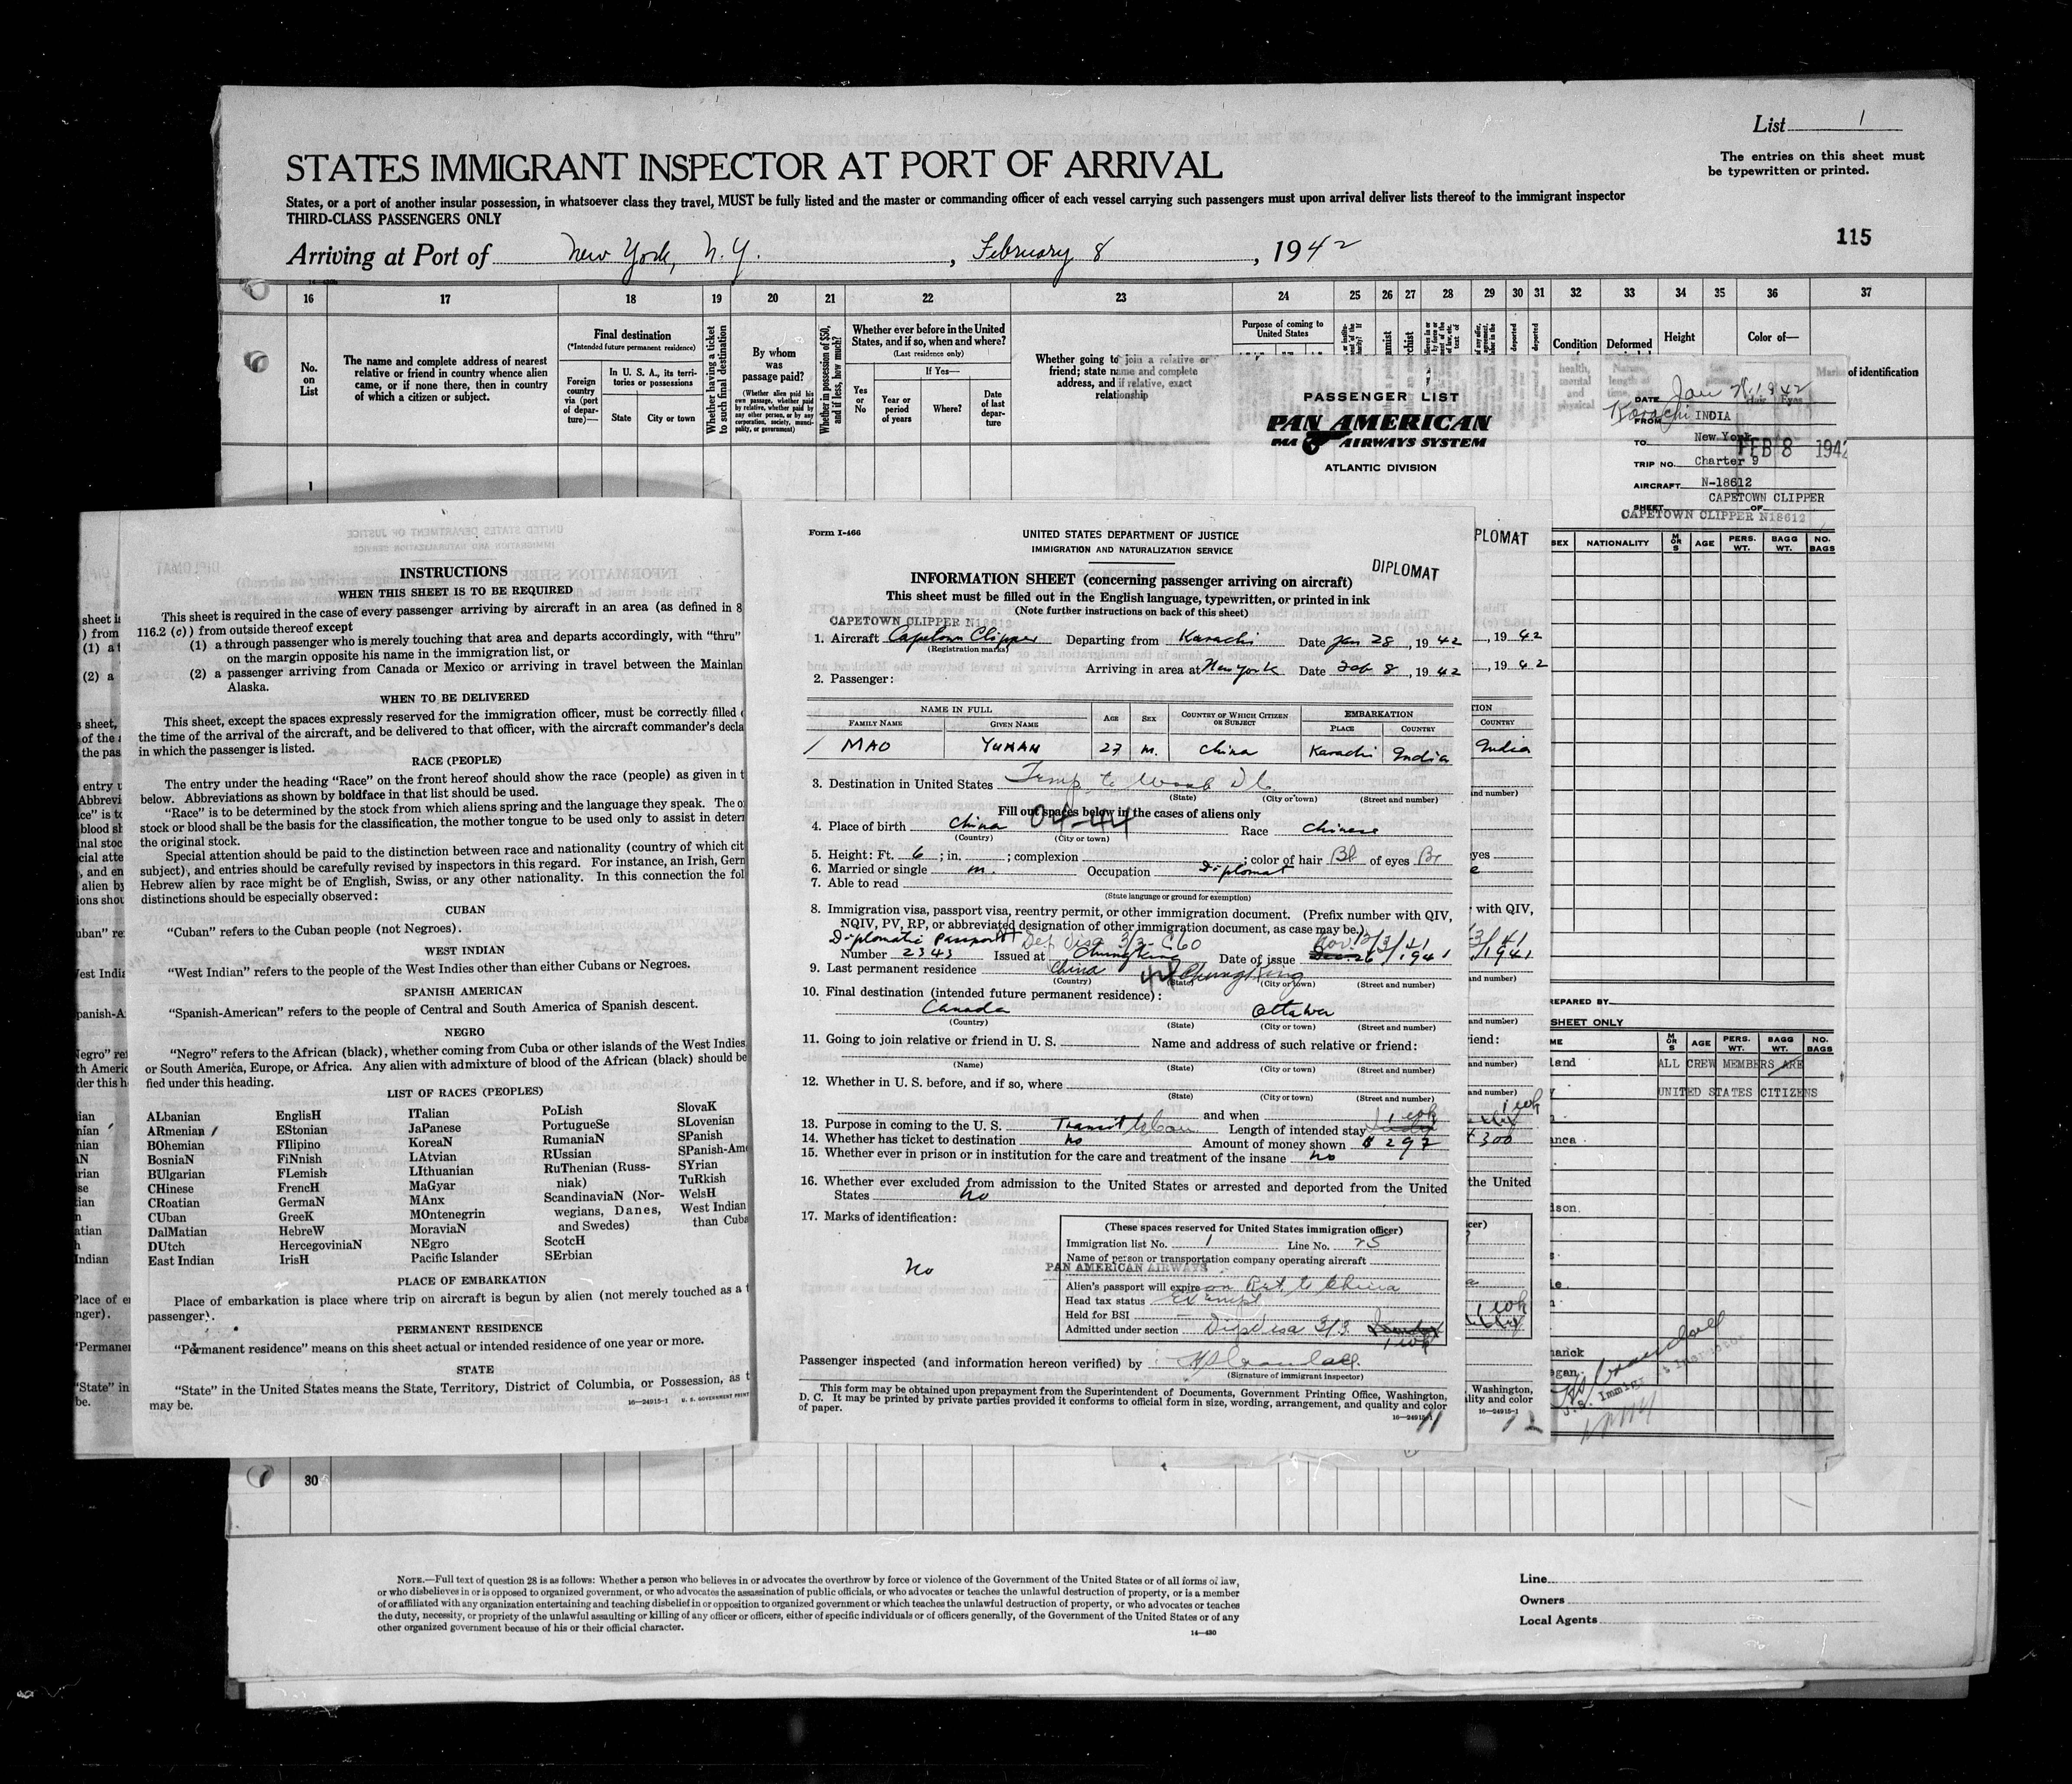 List 1
The entries on this sheet must
be typewritten or printed.
STATES IMMIGRANT INSPECTOR AT PORT OF ARRIVAL
States, or a port of another insular possession, in whatsoever class they travel, MUST be fully listed and the master or commanding officer of each vessel carrying such passengers must upon arrival deliver lists thereof to the immigrant inspector
THIRD-CLASS PASSENGERS ONLY
115
Arriving at Port of New York, N.Y., February 8, 1942
16 17 18 19 20 21 22 23 24 25 26 27 28 29 30 31 32 33 34 35 36 37
No.
on
List
The name and complete address of nearest
relative or friend in country whence alien
came, or if none there, then in country
of which a citizen or subject.
Final destination
(*Intended future permanent residence)
Foreign
country
via (port
of depar-
ture)—
In U. S. A., its terri-
tories or possessions
State City or town
Whether having a ticket
to such final destination
By whom
was
passage paid?
(Whether alien paid his
own passage, whether paid
by relative, whether paid by
any other person, or by any
corporation, society, munici-
pality, or government)
Whether in possession of $50,
and if less, how much?
Whether ever before in the United
States, and if so, when and where?
(Last residence only)
Yes
or
No
If Yes—
Year or
period
of years
Where?
Date
of last
depar-
ture
Whether going to join a relative or
friend; state name and complete
address, and if relative, exact
relationship
Purpose of coming to
United States
Condition
health,
mental
and
physical
Deformed
Height
Color of—
Hair Eyes
Marks of identification
1
PASSENGER LIST
PAN AMERICAN
PAA AIRWAYS SYSTEM
ATLANTIC DIVISION
DATE Jan 1942
FROM Karachi INDIA
TO New York
FEB 8 1942
TRIP NO. Charter 9
AIRCRAFT N-18612
CAPETOWN CLIPPER
SHEET OF
CAPETOWN CLIPPER N18612
SEX NATIONALITY M OR S AGE PERS. WT. BAGG WT. NO. BAGS
INSTRUCTIONS
WHEN THIS SHEET IS TO BE REQUIRED
This sheet is required in the case of every passenger arriving by aircraft in an area (as defined in 8
116.2 (c)) from outside thereof except
(1) a through passenger who is merely touching that area and departs accordingly, with "thru"
on the margin opposite his name in the immigration list, or
(2) a passenger arriving from Canada or Mexico or arriving in travel between the Mainlan
Alaska.
WHEN TO BE DELIVERED
This sheet, except the spaces expressly reserved for the immigration officer, must be correctly filled
the time of the arrival of the aircraft, and be delivered to that officer, with the aircraft commander's decla
in which the passenger is listed.
RACE (PEOPLE)
The entry under the heading "Race" on the front hereof should show the race (people) as given in t
below. Abbreviations as shown by boldface in that list should be used.
"Race" is to be determined by the stock from which aliens spring and the language they speak. The o
stock or blood shall be the basis for the classification, the mother tongue to be used only to assist in deter
the original stock.
Special attention should be paid to the distinction between race and nationality (country of which cit
subject), and entries should be carefully revised by inspectors in this regard. For instance, an Irish, Gern
Hebrew alien by race might be of English, Swiss, or any other nationality. In this connection the fol
distinctions should be especially observed:
CUBAN
"Cuban" refers to the Cuban people (not Negroes).
WEST INDIAN
"West Indian" refers to the people of the West Indies other than either Cubans or Negroes.
SPANISH AMERICAN
"Spanish-American" refers to the people of Central and South America of Spanish descent.
NEGRO
"Negro" refers to the African (black), whether coming from Cuba or other islands of the West Indies
or South America, Europe, or Africa. Any alien with admixture of blood of the African (black) should be
fied under this heading.
LIST OF RACES (PEOPLES)
ALbanian EnglisH ITalian PoLish SlovaK
ARmenian EStonian JaPanese PortugueSe SLovenian
BOhemian FIlipino KoreaN RumaniaN SPanish
BosniaN FiNnish LAtvian RUssian SPanish-Ame
BUlgarian FLemish LIthuanian RuThenian (Russ- SYrian
CHinese FrencH MaGyar niak) TuRkish
CRoatian GermaN MAnx ScandinaviaN (Nor- WelsH
CUban GreeK MOntenegrin wegians, Danes, West Indian
DalMatian HebreW MoraviaN and Swedes) than Cuba
DUtch HercegoviniaN NEgro ScotcH
East Indian IrisH Pacific Islander SErbian
PLACE OF EMBARKATION
Place of embarkation is place where trip on aircraft is begun by alien (not merely touched as a t
passenger).
PERMANENT RESIDENCE
"Permanent residence" means on this sheet actual or intended residence of one year or more.
STATE
"State" in the United States means the State, Territory, District of Columbia, or Possession, as t
may be.
16—24915-1 U. S. GOVERNMENT PRINT
Form I-466
UNITED STATES DEPARTMENT OF JUSTICE
IMMIGRATION AND NATURALIZATION SERVICE
DIPLOMAT
INFORMATION SHEET (concerning passenger arriving on aircraft)
This sheet must be filled out in the English language, typewritten, or printed in ink
(Note further instructions on back of this sheet)
CAPETOWN CLIPPER N18612
1. Aircraft Capetown Clipper Departing from Karachi Date Jan 28, 1942
(Registration marks)
Arriving in area at New York Date Feb 8, 1942
2. Passenger:
NAME IN FULL AGE SEX COUNTRY OF WHICH CITIZEN OR SUBJECT EMBARKATION
FAMILY NAME GIVEN NAME PLACE COUNTRY
/ MAO YUHAN 27 M. China Karachi India
3. Destination in United States Temp. to Wash D.C.
(State) (City or town) (Street and number)
Fill out spaces below in the cases of aliens only
4. Place of birth China Race Chinese
(Country) (City or town)
5. Height: Ft. 6; in. ; complexion ; color of hair Bl of eyes Br
6. Married or single m. Occupation Diplomat
7. Able to read
(State language or ground for exemption)
8. Immigration visa, passport visa, reentry permit, or other immigration document. (Prefix number with QIV,
NQIV, PV, RP, or abbreviated designation of other immigration document, as case may be.)
Diplomatic Passport Dip Visa 3/3
Number 2343 Issued at Chungking Date of issue 1941
9. Last permanent residence China Chungking
(Country) (State) (City or town) (Street and number)
10. Final destination (intended future permanent residence):
Canada Ottawa
(Country) (State) (City or town) (Street and number)
11. Going to join relative or friend in U. S. Name and address of such relative or friend:
(Name) (State) (City or town) (Street and number)
12. Whether in U. S. before, and if so, where
(State) (City or town) (Street and number)
and when
13. Purpose in coming to the U. S. Transit to Can Length of intended stay 1 wk
14. Whether has ticket to destination no Amount of money shown $297
15. Whether ever in prison or in institution for the care and treatment of the insane no
16. Whether ever excluded from admission to the United States or arrested and deported from the United
States no
17. Marks of identification:
No
(These spaces reserved for United States immigration officer)
Immigration list No. 1 Line No. 25
Name of person or transportation company operating aircraft
PAN AMERICAN AIRWAYS
Alien's passport will expire on Ret. to China
Head tax status Exempt
Held for BSI —
Admitted under section Dip Visa 3/3 1 wk
Passenger inspected (and information hereon verified) by
(Signature of immigrant inspector)
This form may be obtained upon prepayment from the Superintendent of Documents, Government Printing Office, Washington,
D. C. It may be printed by private parties provided it conforms to official form in size, wording, arrangement, and quality and color
of paper.
16—24915-1
11
PLOMAT
, 1942
, 1942
COUNTRY
India
with QIV,
1941
$300
1 wk
the United
Washington,
lity and color
16—24915-1
12
PREPARED BY
SHEET ONLY
M OR S AGE PERS. WT. BAGG WT. NO. BAGS
ALL CREW MEMBERS ARE
UNITED STATES CITIZENS
30
NOTE.—Full text of question 28 is as follows: Whether a person who believes in or advocates the overthrow by force or violence of the Government of the United States or of all forms of law,
or who disbelieves in or is opposed to organized government, or who advocates the assassination of public officials, or who advocates or teaches the unlawful destruction of property, or is a member
of or affiliated with any organization entertaining and teaching disbelief in or opposition to organized government or which teaches the unlawful destruction of property, or who advocates or teaches
the duty, necessity, or propriety of the unlawful assaulting or killing of any officer or officers, either of specific individuals or of officers generally, of the Government of the United States or of any
other organized government because of his or their official character.
14—430
Line
Owners
Local Agents